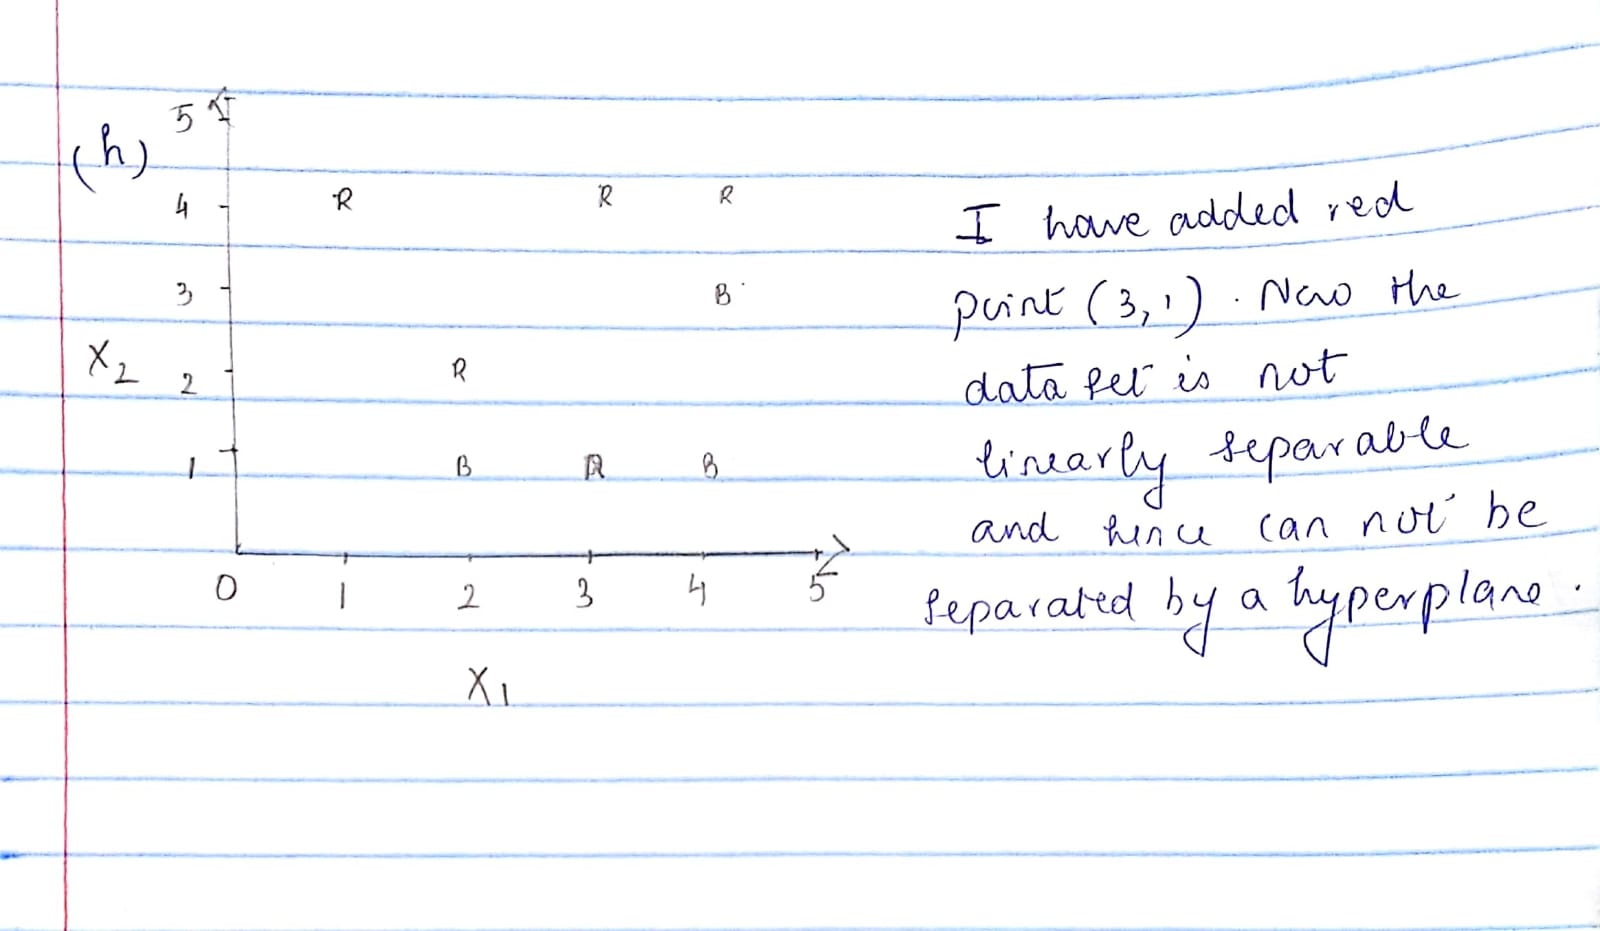 (h)
5
4 R R R
3 B
X2 2 R
1 B R B
0 1 2 3 4 5
X1
I have added red
point (3,1). Now the
data set is not
linearly separable
and hence can not be
separated by a hyperplane.